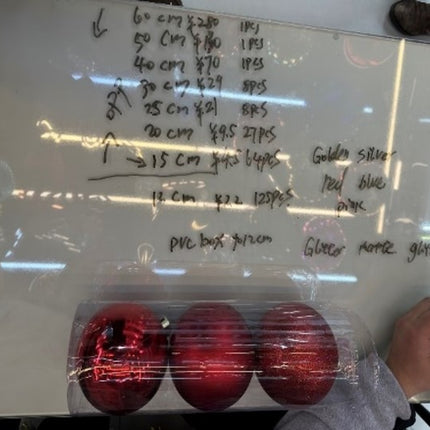 60 cm ¥280 1pcs
50 cm ¥180 1pcs
40 cm ¥70 1pcs
30 cm ¥29 8pcs
25 cm ¥21 8pcs
20 cm ¥9.5 27pcs
15 cm ¥4.5 64pcs
12 cm ¥2.2 125pcs
Golden silver
red blue
pink
PVC box 12cm
matte